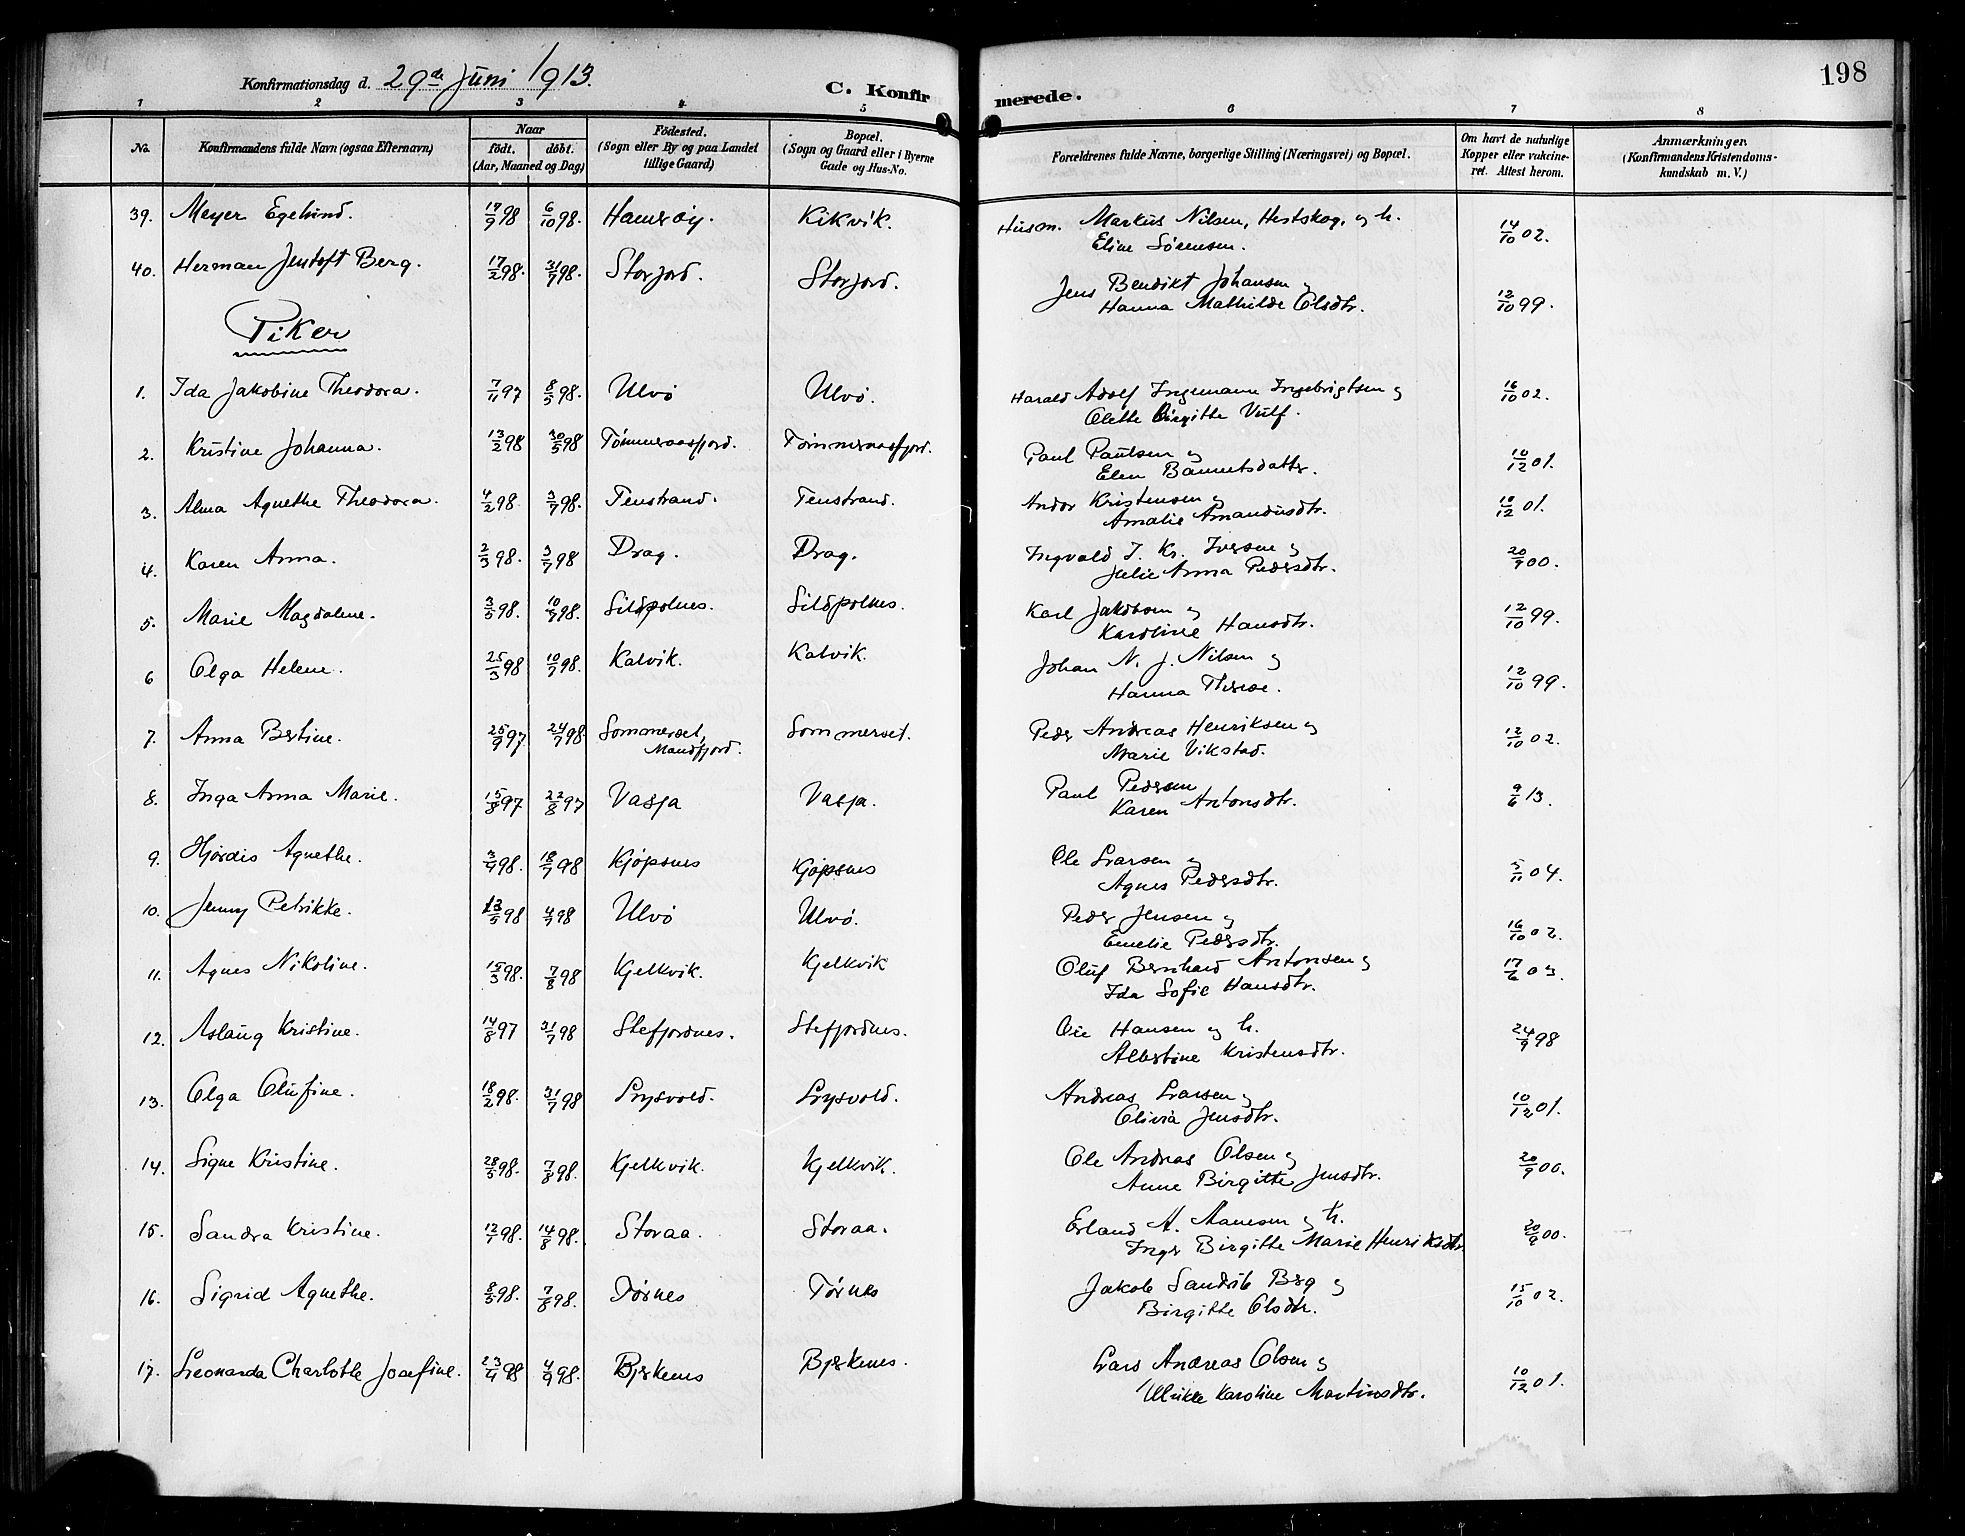 198
Konfirmationsdag d. 29de Juni 1913.
C. Konfirmerede.
1 2 3 4 5 6 7 8
No.
Konfirmandens fulde Navn (ogsaa Efternavn)
Naar
født. døbt.
(Aar, Maaned og Dag)
Fødested.
(Sogn eller By og paa Landet
tillige Gaard)
Bopæl.
(Sogn og Gaard eller i Byerne
Gade og Hus-No.
Forældrenes fulde Navne, borgerlige Stilling (Næringsvei) og Bopæl.
Om havt de naturlige
Kopper eller vakcine-
ret. Attest herom.
Anmærkninger.
(Konfirmandens Kristendoms-
kundskab m. V.)
39. Meyer Egelund. 17/9 98 6/10 98. Hamsøy. Kikvik. Husm. Markus Nilsen, Hestskog, og h. 14/10 02.
Eline Sørensen.
40. Herman Jentoft Berg. 17/2 98. 31/7 98. Storjord. Storjord. Jens Benedikt Johansen og
Hanna Mathilde Olsdtr. 12/10 99.
Piker
1. Ida Jakobine Theodora. 7/11 97 8/5 98. Ulvø Ulvø. Harald Adolf Ingemann Ingebrigtsen og 16/10 02.
Olette Birgitte Vulf.
2. Kristine Johanna. 13/2 98 30/5 98 Tømmeraasfjord. Tømmeraasfjord. Paul Paulsen og 10/12 01.
Elen Bannetsdatter.
3. Alma Agnethe Theodora. 4/2 98. 3/7 98. Tenstrand. Tenstrand. Andor Kristensen og 10/12 01.
Amalie Amandusdtr.
4. Karen Anna. 2/3 98. 3/7 98 Drag. Drag. Ingvald J. Kr. Iversen og 20/9 00.
Julie Anna Pedersdtr.
5. Marie Magdalene. 3/5 98. 10/7 98. Sildpolnes. Sildpolnes. Karl Jakobsen og 12/10 99.
Karoline Hansdtr.
6 Olga Helene. 25/3 98 10/7 98. Kalvik. Kalvik. Johan N. J. Nilsen og 12/10 99.
Hanna Therese.
7. Anna Bertine. 25/9 97 24/7 98 Sommerset, Sommerset. Peder Andreas Henriksen og 12/10 02.
Mandfjord. Marie Vikstad.
8. Inga Anna Marie. 15/8 97 22/8 97 Vasja Vasja. Paul Pedersen 9/6 13.
Karen Antonsdtr.
9. Hjørdis Agnethe. 3/4 98. 18/7 98 Kjøpsnes Kjøpsnes Ole Larsen og 5/11 04.
Agnes Pedersdtr.
10. Jenny Petrikke. 13/5 98 4/7 98 Ulvø Ulvø. Peder Jensen og 16/10 02.
Emelie Pedersdtr.
11. Agnes Nikoline. 15/3 98. 7/8 98 Kjelkvik. Kjelkvik Oluf Bernhard Antonsen og 17/6 03.
Ida Sofie Hansdtr.
12. Aslaug Kristine. 14/8 97 31/7 98 Stefjordnes. Stefjordnes. Ole Hansen og h. 24/9 98
Albertine Kristensdtr.
13. Olga Olufine. 18/2 98. 31/7 98 Lysvold. Lysvold. Andreas Larsen og 10/12 01.
Olivia Jensdtr.
14. Signe Kristine. 28/5 98. 7/8 98. Kjelkvik. Kjelkvik. Ole Andreas Olsen og 20/9 00.
Anne Birgitte Jensdtr.
15. Sandra Kristine. 12/1 98. 14/8 98. Storaa. Storaa. Erland A. Aanesen og h. 20/9 00.
Inger Birgitte Marie Henriksdtr.
16. Sigrid Agnethe. 8/5 98. 7/8 98. Tørnes Tørnes Jakob Sandrib Berg og 15/10 02.
Birgitte Olsdtr.
17. Leonarda Charlotte Josefine. 23/4 98 4/9 98. Bjerkenes Bjerkenes. Lars Andreas Olsen og 10/12 01.
Ulrikke Karoline Martinsdtr.